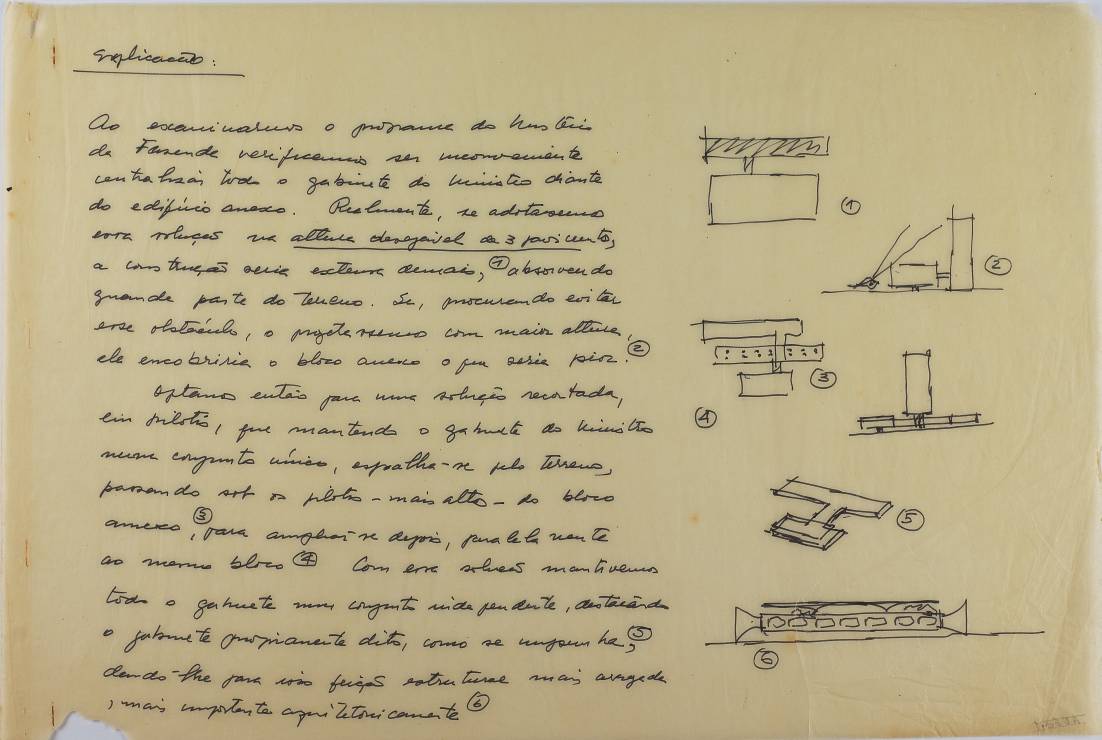 explicação:
Ao examinarmos o programa do Ministério
da Fazenda verificamos ser inconveniente
centralizar todo o gabinete do Ministro diante
do edifício anexo. Realmente, se adotassemos
essa solução na altura desejável de 3 pavimentos,
a construção seria extensa demais, ① absorvendo
grande parte do terreno. Se, procurando evitar
esse obstáculo, o projetassemos com maior altura,
ele encobriria o bloco anexo o que seria pior. ②
Optamos então para uma solução recortada,
em pilotis, que mantendo o gabinete do Ministro
num conjunto único, espalha-se pelo terreno,
passando sob os pilotis - mais alto - do bloco
anexo, ③ para ampliar-se depois, paralelamente
ao mesmo bloco ④ Com essa solução mantivemos
todo o gabinete num conjunto independente, destacando
o gabinete propriamente dito, como se impunha, ⑤
dando-lhe para isso feição estrutural mais arrojada
, mais importante arquitetonicamente ⑥
①
②
③
④
⑤
⑥